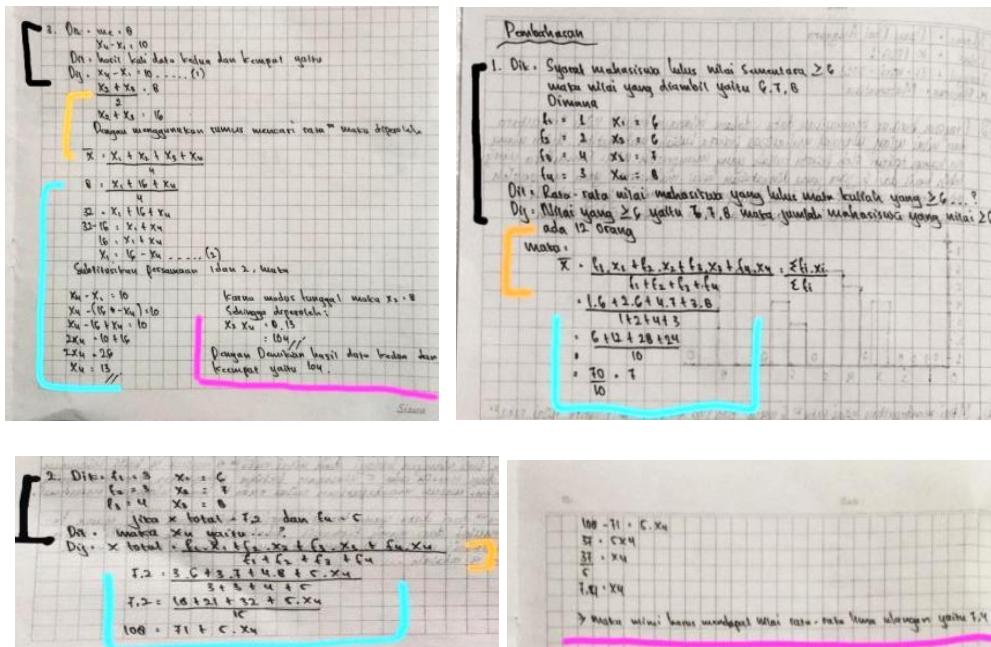 3. Dik = me = 8
x4 - x1 = 10
Dit = hasil kali data kedua dan keempat yaitu
Dij = x4 - x1 = 10 ..... (1)
x2 + x3 = 8
2
x2 + x3 = 16
Dengan menggunakan rumus mencari rata" maka diperoleh
x̄ = x1 + x2 + x3 + x4
4
8 = x1 + 16 + x4
4
32 = x1 + 16 + x4
32 - 16 = x1 + x4
16 = x1 + x4
x1 = 16 - x4 ..... (2)
Substitusikan persamaan 1 dan 2, maka
x4 - x1 = 10
x4 - (16 - x4) = 10
x4 - 16 + x4 = 10
2x4 = 10 + 16
2x4 = 26
x4 = 13
Karna modus tunggal maka x2 = 8
Sehingga diperoleh:
x2 x4 = 8.13
= 104
Dengan Demikian hasil data kedua dan
keempat yaitu 104.
Pembahasan
1. Dik = Syarat mahasiswa lulus nilai sementara ≥ 6
maka nilai yang diambil yaitu 6, 7, 8
Dimana
f1 = 1 x1 = 6
f2 = 2 x2 = 6
f3 = 4 x3 = 7
f4 = 3 x4 = 8
Dit = Rata-rata nilai mahasiswa yang lulus mata kuliah yang ≥ 6 ...?
Dij = Nilai yang ≥ 6 yaitu 6, 7, 8 maka jumlah mahasiswa yang nilai ≥ 6
ada 12 orang
maka =
x̄ = f1.x1 + f2.x2 + f3.x3 + f4.x4 = Σfi.xi
f1 + f2 + f3 + f4 Σfi
= 1.6 + 2.6 + 4.7 + 3.8
1 + 2 + 4 + 3
= 6 + 12 + 28 + 24
10
= 70 = 7
10
2. Dik = f1 = 3 x1 = 6
f2 = 3 x2 = 7
f3 = 4 x3 = 8
Jika x total = 7,2 dan f4 = 5
Dit = maka x4 yaitu ...?
Dij = x total = f1.x1 + f2.x2 + f3.x3 + f4.x4
f1 + f2 + f3 + f4
7,2 = 3.6 + 3.7 + 4.8 + 5.x4
3 + 3 + 4 + 5
7,2 = 18 + 21 + 32 + 5.x4
15
108 = 71 + 5.x4
108 - 71 = 5.x4
37 = 5x4
37 = x4
5
7,4 = x4
> maka mimi harus mendapat nilai rata-rata lima ulangan yaitu 7,4